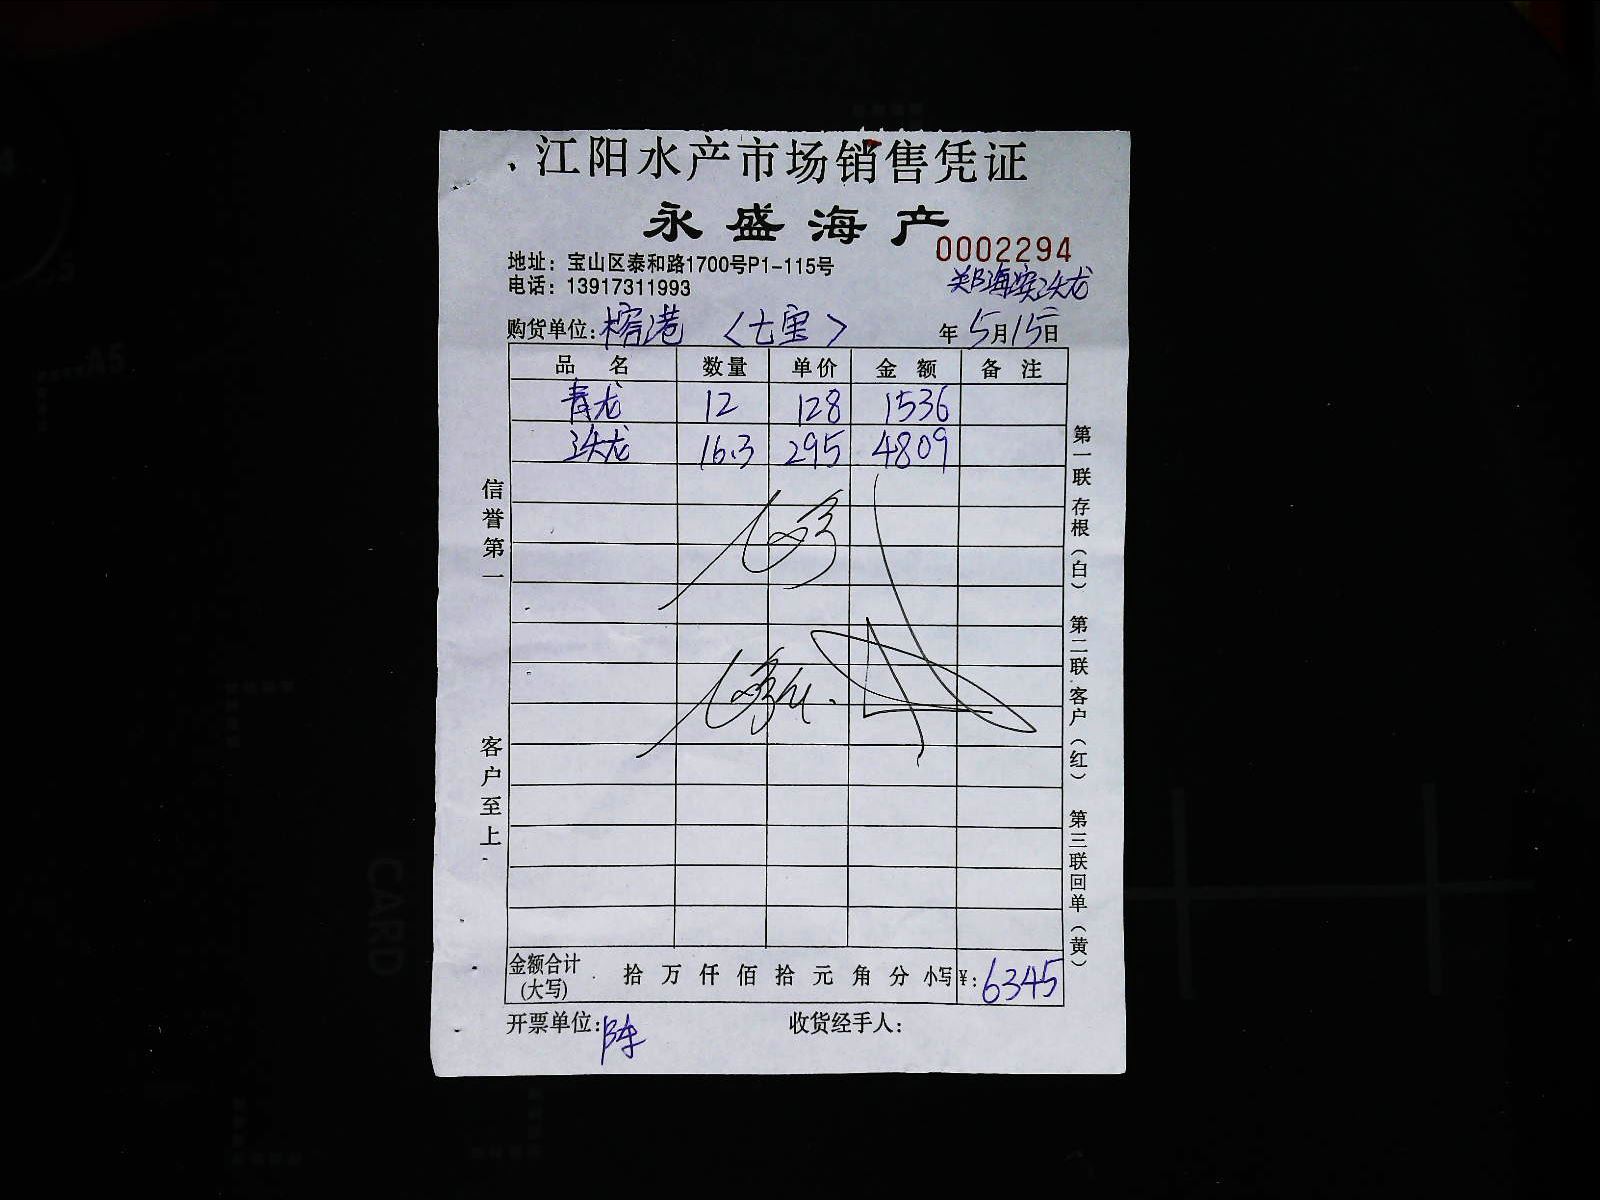 江阳水产市场销售凭证
永盛海产
0002294
地址：宝山区泰和路1700号P1-115号
电话：13917311993
购货单位：榕港 〈七宝〉 年5月15日
品名 数量 单价 金额 备注
青龙 12 128 1536
龙 16.3 295 4809
信誉第一
客户至上
第一联存根（白）
第二联客户（红）
第三联回单（黄）
金额合计(大写) 拾 万 仟 佰 拾 元 角 分 小写¥：6345
开票单位：陈 收货经手人：
CARD
A5